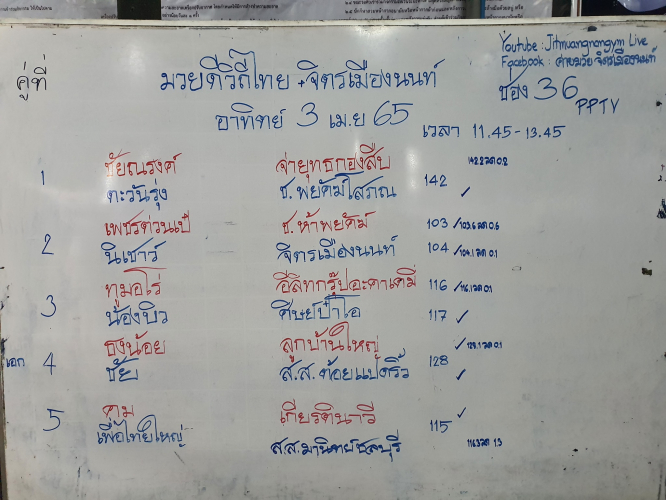 Youtube : Jitmuangnongym Live
Facebook : ค่ายมวย จิตรเมืองนนท์
คู่ที่
มวยดีวิถีไทย + จิตรเมืองนนท์
ช่อง 36
PPTV
อาทิทย์ 3 เม.ย 65
เวลา 11.45 - 13.45
1 ชัยณรงค์ จ่ายุทธกองสืบ 142.2 ลด 0.2
ตะวันรุ่ง ช.พยัคฆ์โสภณ 142 ✓
เพชรด่วนเป๋ ช.ห้าพยัคฆ์ 103 / 103.6 ลด 0.6
2 นิเชาว์ จิตรเมืองนนท์ 104 / 104.1 ลด 0.1
ทูมอโร่ อีลิทกรุ๊ปอะคาเดมี่ 116 / 116.1 ลด 0.1
3 น้องบิว ศิษย์ป๋าโอ 117 ✓
ธงน้อย ลูกบ้านใหญ่ ✓ 128.1 ลด 0.1
เอก 4 ชัย ส.ส.ต้อยแปดริ้ว 128 ✓
คม เกียรตินาวี ✓
5 เพื่อไทยใหญ่ 115
ส.ส.มานิทย์ชลบุรี 116.3 ลด 1.3